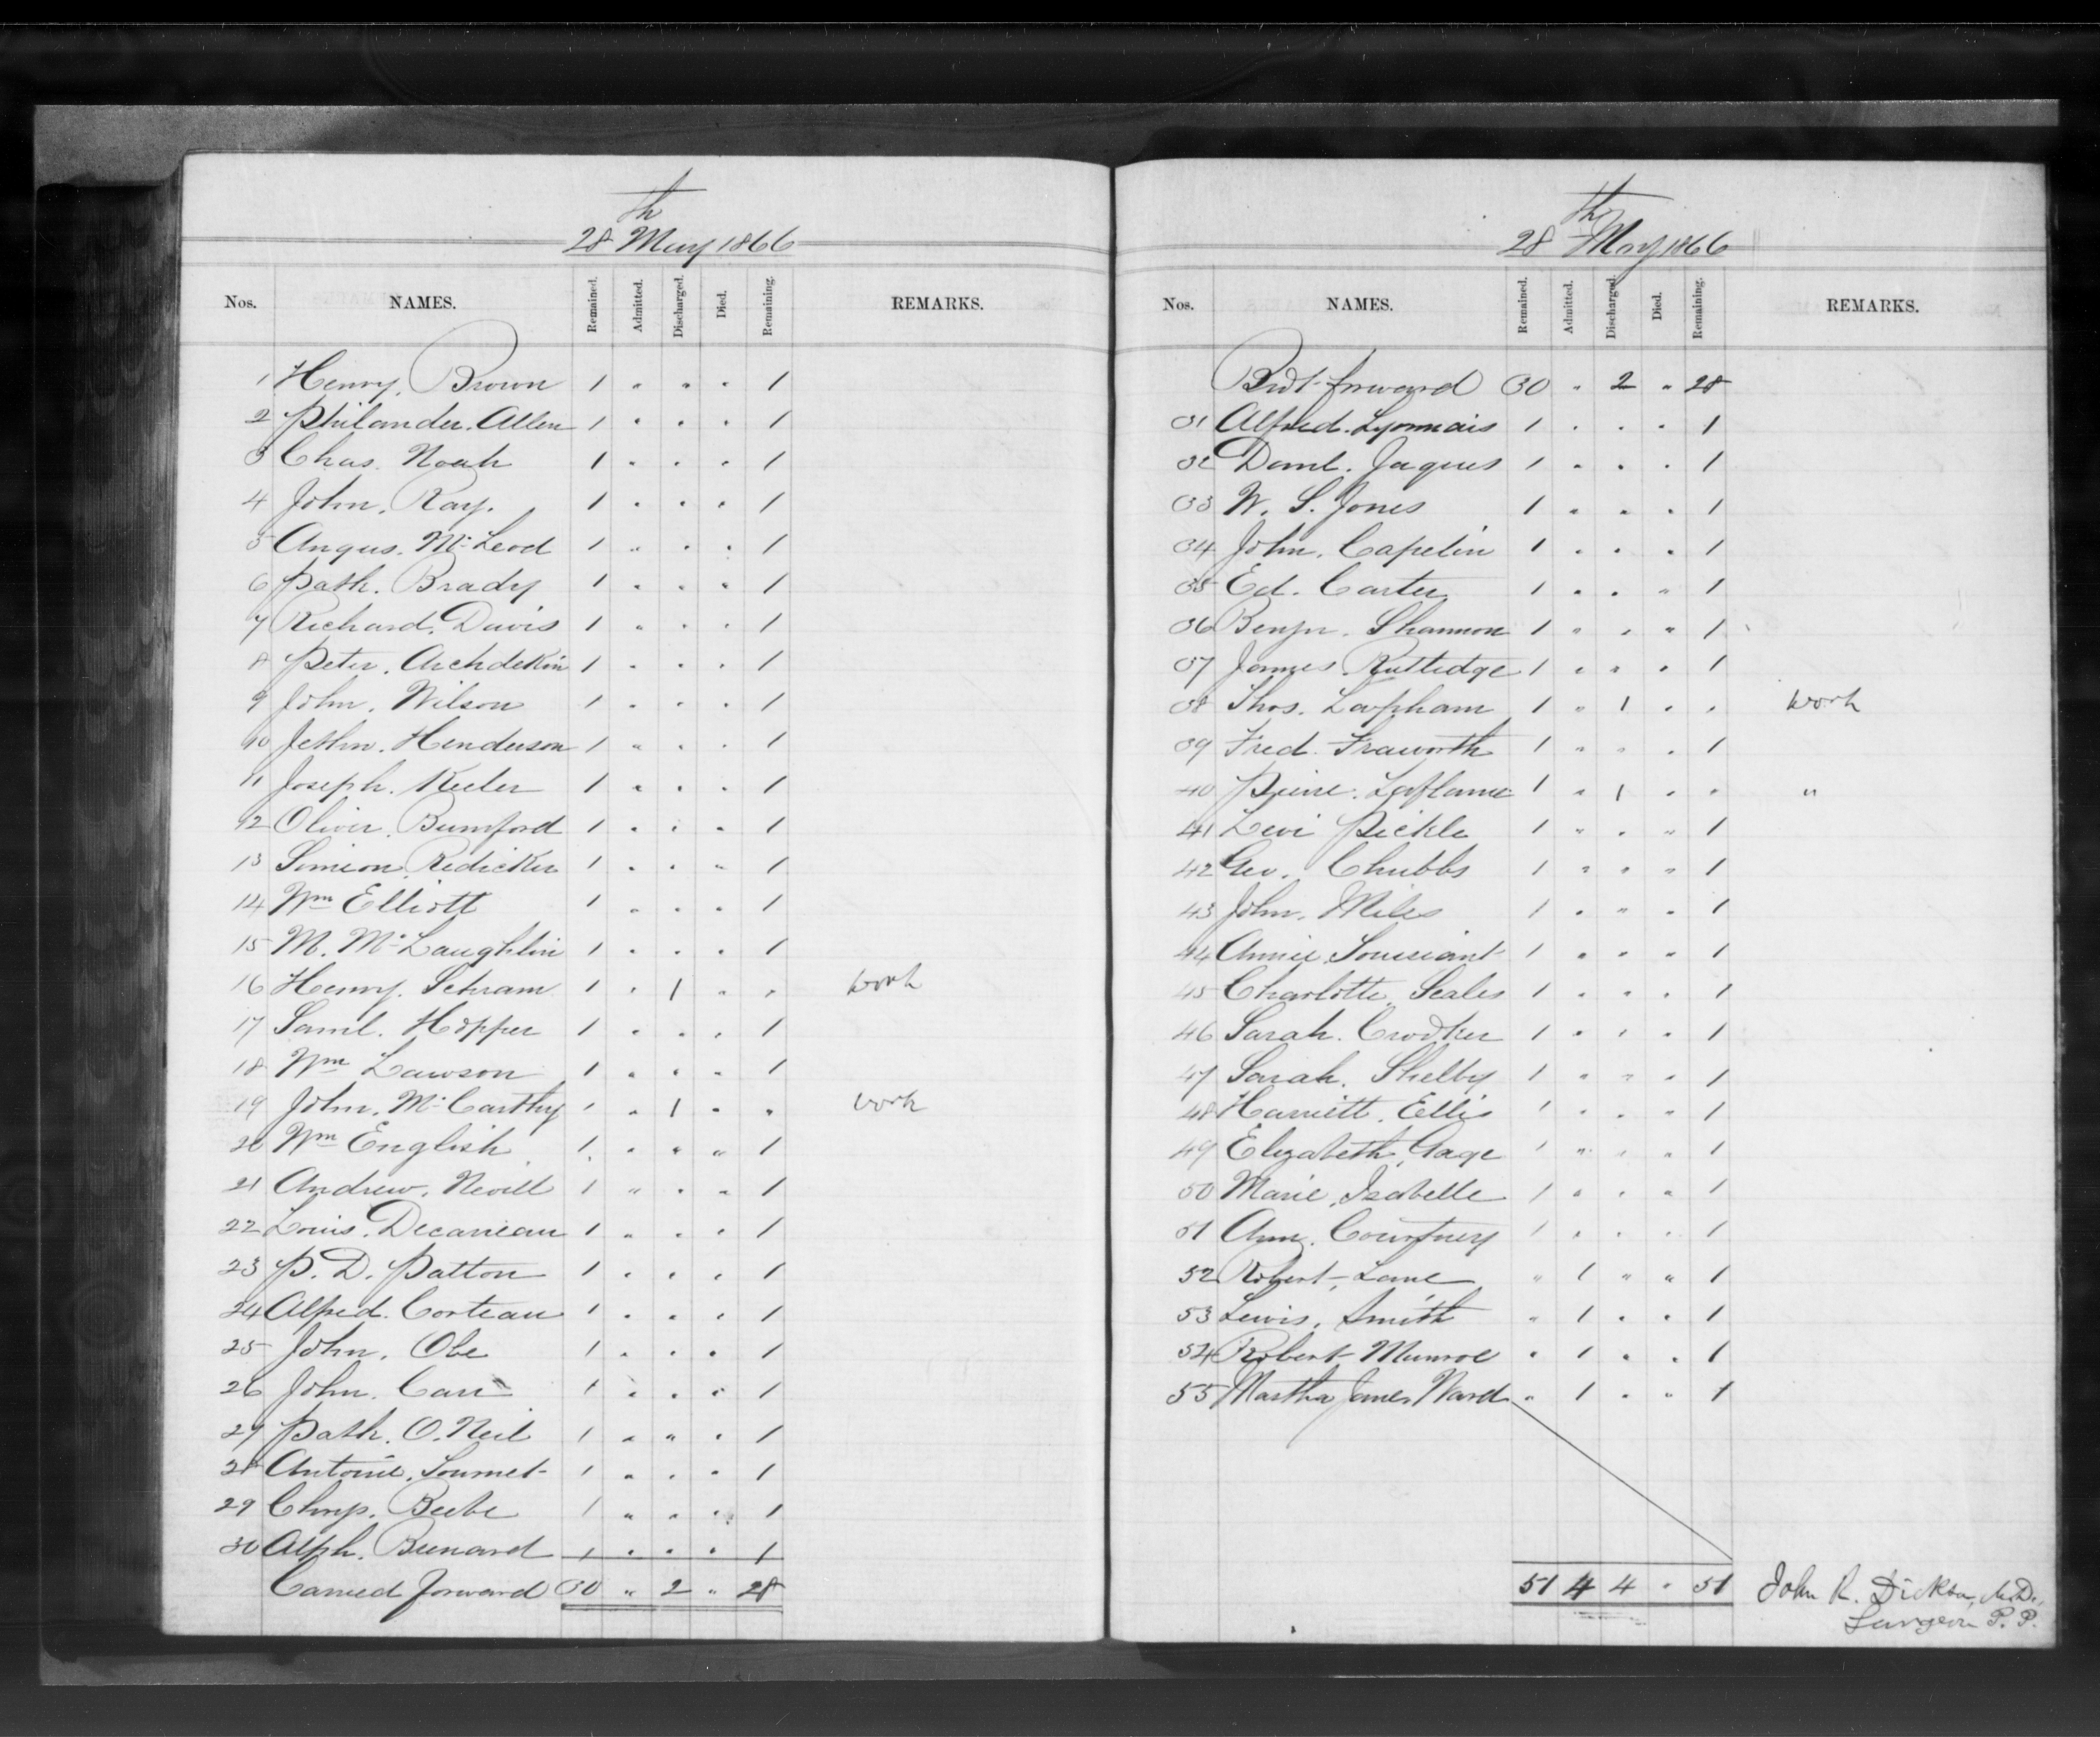 28th May 1866
Nos. NAMES. Remained. Admitted. Discharged. Died. Remaining. REMARKS.
1 Henry. Brown 1 " " " 1
2 Philander. Allen 1 " " " 1
3 Chas. Noah 1 " " " 1
4 John. Ray. 1 " " " 1
5 Angus. Mc Leod 1 " " " 1
6 Patk. Brady 1 " " " 1
7 Richard. Davis 1 " " " 1
8 Peter. Archdekin 1 " " " 1
9 John. Wilson 1 " " " 1
10 Henderson 1 " " " 1
11 Joseph. Keeler 1 " " " 1
12 Oliver. Bumford 1 " " " 1
13 Simeon. Redicker 1 " " " 1
14 Wm Elliott 1 " " " 1
15 M. Mc Laughlin 1 " " " 1
16 Henry. Schram 1 " 1 " " work
17 Saml. Hopper 1 " " " 1
18 Wm Lawson 1 " " " 1
19 John. Mc Carthy 1 " 1 " " work
20 Wm English 1 " " " 1
21 Andrew. Nevill 1 " " " 1
22 Louis. Decaneau 1 " " " 1
23 P. D. Patton 1 " " " 1
24 Alfred. Corteau 1 " " " 1
25 John. Obe 1 " " " 1
26 John. Carr 1 " " " 1
27 Patk. O. Neil 1 " " " 1
28 Antoine. 1 " " " 1
29 Beebe 1 " " " 1
30 Alph. 1 " " " 1
Carried forward 30 " 2 " 28
28th May 1866
Nos. NAMES. Remained. Admitted. Discharged. Died. Remaining. REMARKS.
Brot forward 30 " 2 " 28
31 Alfred. Lyonnais 1 " " " 1
32 Daml. Jaques 1 " " " 1
33 W. S. Jones 1 " " " 1
34 John. Capelin 1 " " " 1
35 Ed. Carter 1 " " " 1
36 Benjn. Shannon 1 " " " 1
37 James. Rutledge 1 " " " 1
38 Thos. Lapham 1 " 1 " " work
39 Fred. Fraworth 1 " " " 1
40 Pierre. Laflame 1 " 1 " " "
41 Levi Pickle 1 " " " 1
42 Geo. Chubbs 1 " " " 1
43 John. Miles 1 " " " 1
44 Annie. Toussiant 1 " " " 1
45 Charlotte. Scales 1 " " " 1
46 Sarah. Crooker 1 " " " 1
47 Sarah. Shelby 1 " " " 1
48 Harriett. Ellis 1 " " " 1
49 Elizabeth. Gage 1 " " " 1
50 Marie. Isabelle 1 " " " 1
51 Ann. Courtney 1 " " " 1
52 Robert. Lane " 1 " " 1
53 Lewis. Smith " 1 " " 1
54 Robert Munroe " 1 " " 1
55 Martha Jane Ward " 1 " " 1
51 4 4 " 51
John R. Dickson, M.D.,
Surgeon P. P.